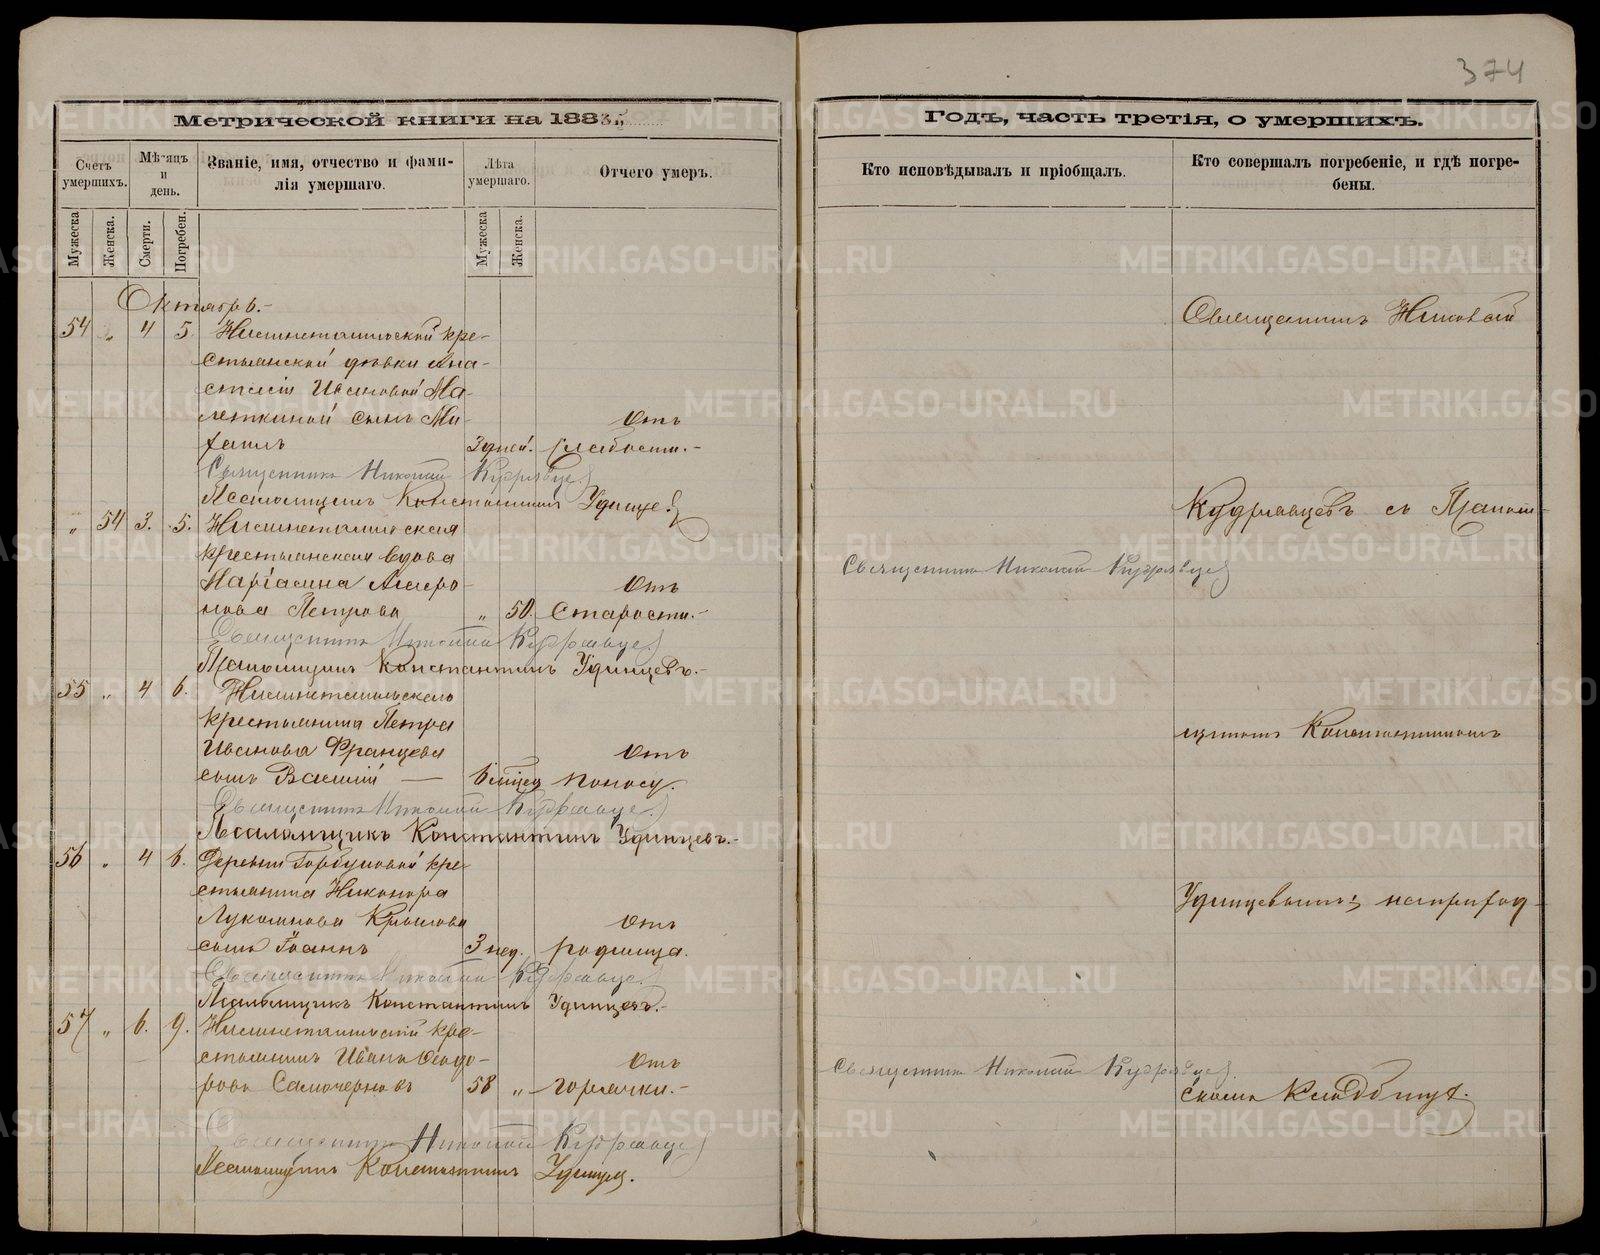 374
Метрической книги на 1885
Годъ, часть третія, о умершихъ.
Счетъ умершихъ.
Мѣсяцъ и день.
Званіе, имя, отчество и фами-
лія умершаго.
Лѣта умершаго.
Отчего умеръ.
Кто исповѣдывалъ и пріобщалъ.
Кто совершалъ погребеніе, и гдѣ погре-
бены.
Мужеска
Женска.
Смерти.
Погребен.
Мужеска
Женска.
Октябрь.-
54 „ 4 5. Нижнетагильской кре-
стьянской дѣвки Ана-
стасіи Ивановой Ма-
леткиной сынъ Ми- Отъ
хаилъ 3 дней. слабости.-
Священникъ Николай Кудрявцевъ
Псаломщикъ Константинъ Удинцевъ
„ 54 3. 5. Нижнетагильская
крестьянская вдова
Маріамна Амеро- Отъ
нова Петрова „ 50. Старости.-
Священникъ Николай Кудрявцевъ
Псаломщикъ Константинъ Удинцевъ.-
55 „ 4 6. Нижнетагильскаго
крестьянина Петра
Иванова Францева Отъ
сынъ Василій — 6 мѣсяц поносу.
Священникъ Николай Кудрявцевъ
Псаломщикъ Константинъ Удинцевъ.-
56 „ 4 6. Деревни Горбуновой кре-
стьянина Никонора
Лукоянова Крылова Отъ
сынъ Іоаннъ 3 нед. родимца.
Священникъ Николай Кудрявцевъ
Псаломщикъ Константинъ Удинцевъ.-
57 „ 6. 9. Нижнетагильскій кре-
стьянинъ Иванъ Ѳеодо- Отъ
ровъ Самочерновъ 58 „ горячки.-
Священникъ Николай Кудрявцевъ
Псаломщикъ Константинъ Удинцевъ.
Священникъ Николай Кудрявцевъ
Священникъ Николай Кудрявцевъ.
Священникъ Николай
Кудрявцевъ съ Псалом-
щикомъ Константиномъ
Удинцевымъ; на приход-
скомъ кладбищѣ.
METRIKI.GASO-URAL.RU